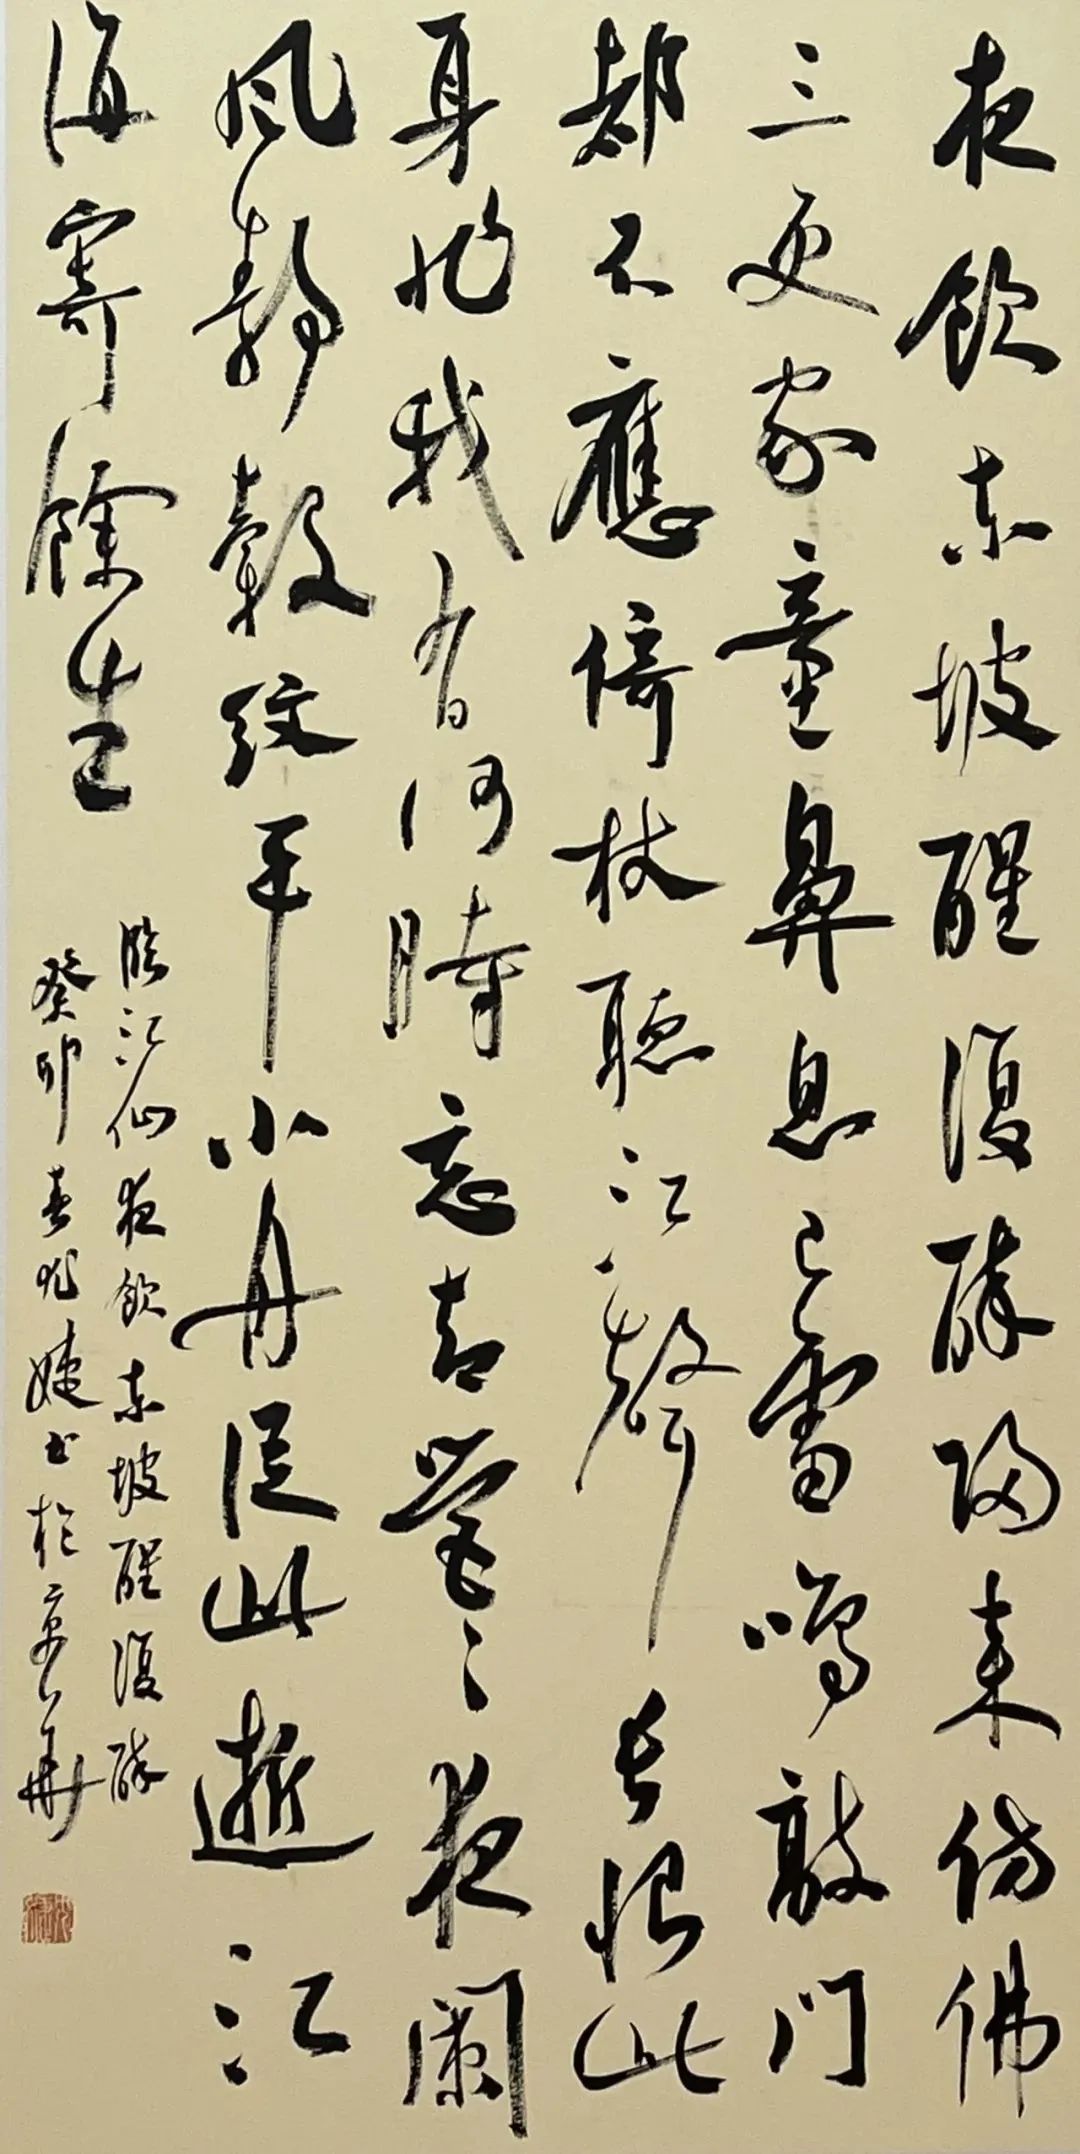 夜飲東坡醒復醉歸來仿佛
三更家童鼻息已雷鳴敲門
都不應倚杖聽江聲長恨此
身非我有何時忘却營々夜闌
風靜縠紋平小舟從此逝江
海寄餘生
臨江仙夜飲東坡醒復醉
癸卯春婕书於京華